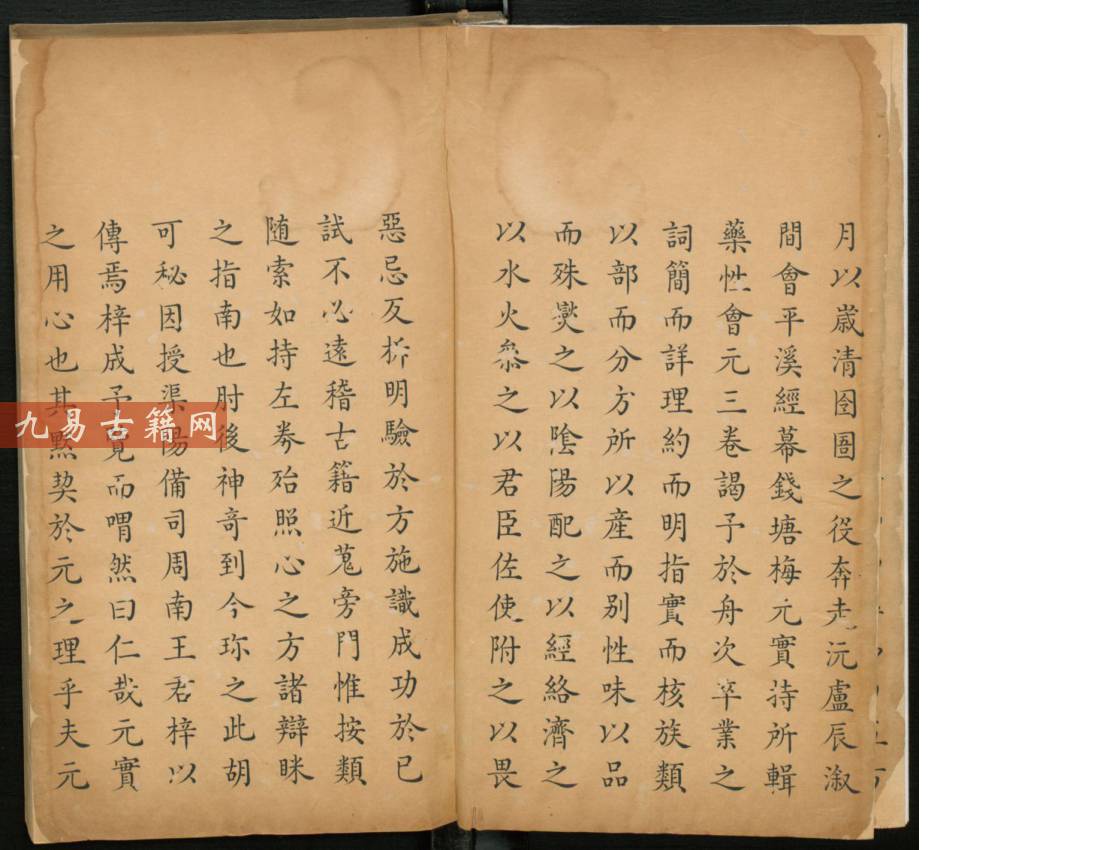 月以歲清囹圄之役奔走沅盧辰溆
間會平溪經幕錢塘梅元實持所輯
藥性會元三卷謁予於舟次卒業之
詞簡而詳理約而明指實而核族類
以部而分方所以產而别性味以品
而殊爕之以陰陽配之以經絡濟之
以水火叅之以君臣佐使附之以畏
惡忌反析明驗於方施識成功於已
試不必遠稽古籍近蒐旁門惟按類
随索如持左劵殆照心之方諸辯眯
之指南也肘後神奇到今珎之此胡
可秘因授渠陽備司周南王君梓以
傳焉梓成予覽而喟然曰仁哉元實
之用心也其黙契於元之理乎夫元
九易古籍网